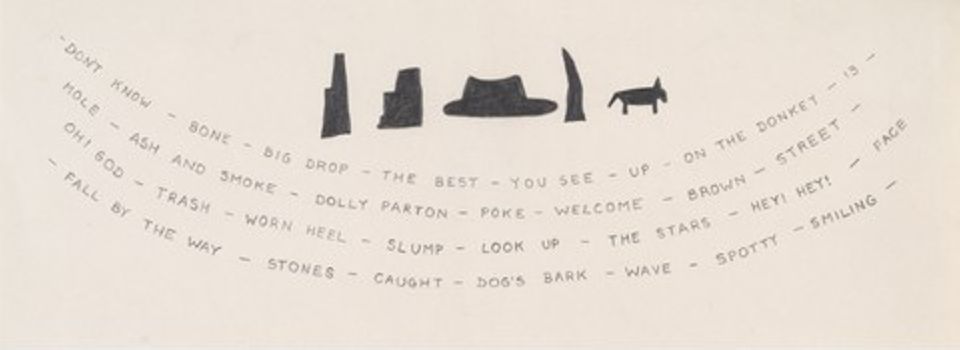 – DON'T KNOW – BONE – BIG DROP – THE BEST – YOU SEE – UP – ON THE DONKEY – 13 –
MOLE – ASH AND SMOKE – DOLLY PARTON – POKE – WELCOME – BROWN – STREET –
OH! GOD – TRASH – WORN HEEL – SLUMP – LOOK UP – THE STARS – HEY! HEY! – FACE
– FALL BY THE WAY – STONES – CAUGHT – DOG'S BARK – WAVE – SPOTTY – SMILING –